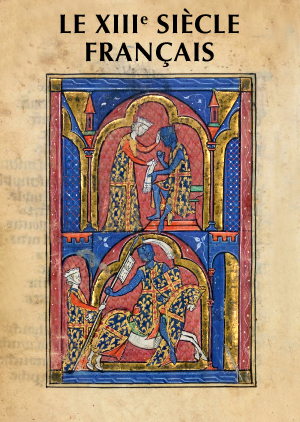 LE XIIIᵉ SIÈCLE
FRANÇAIS